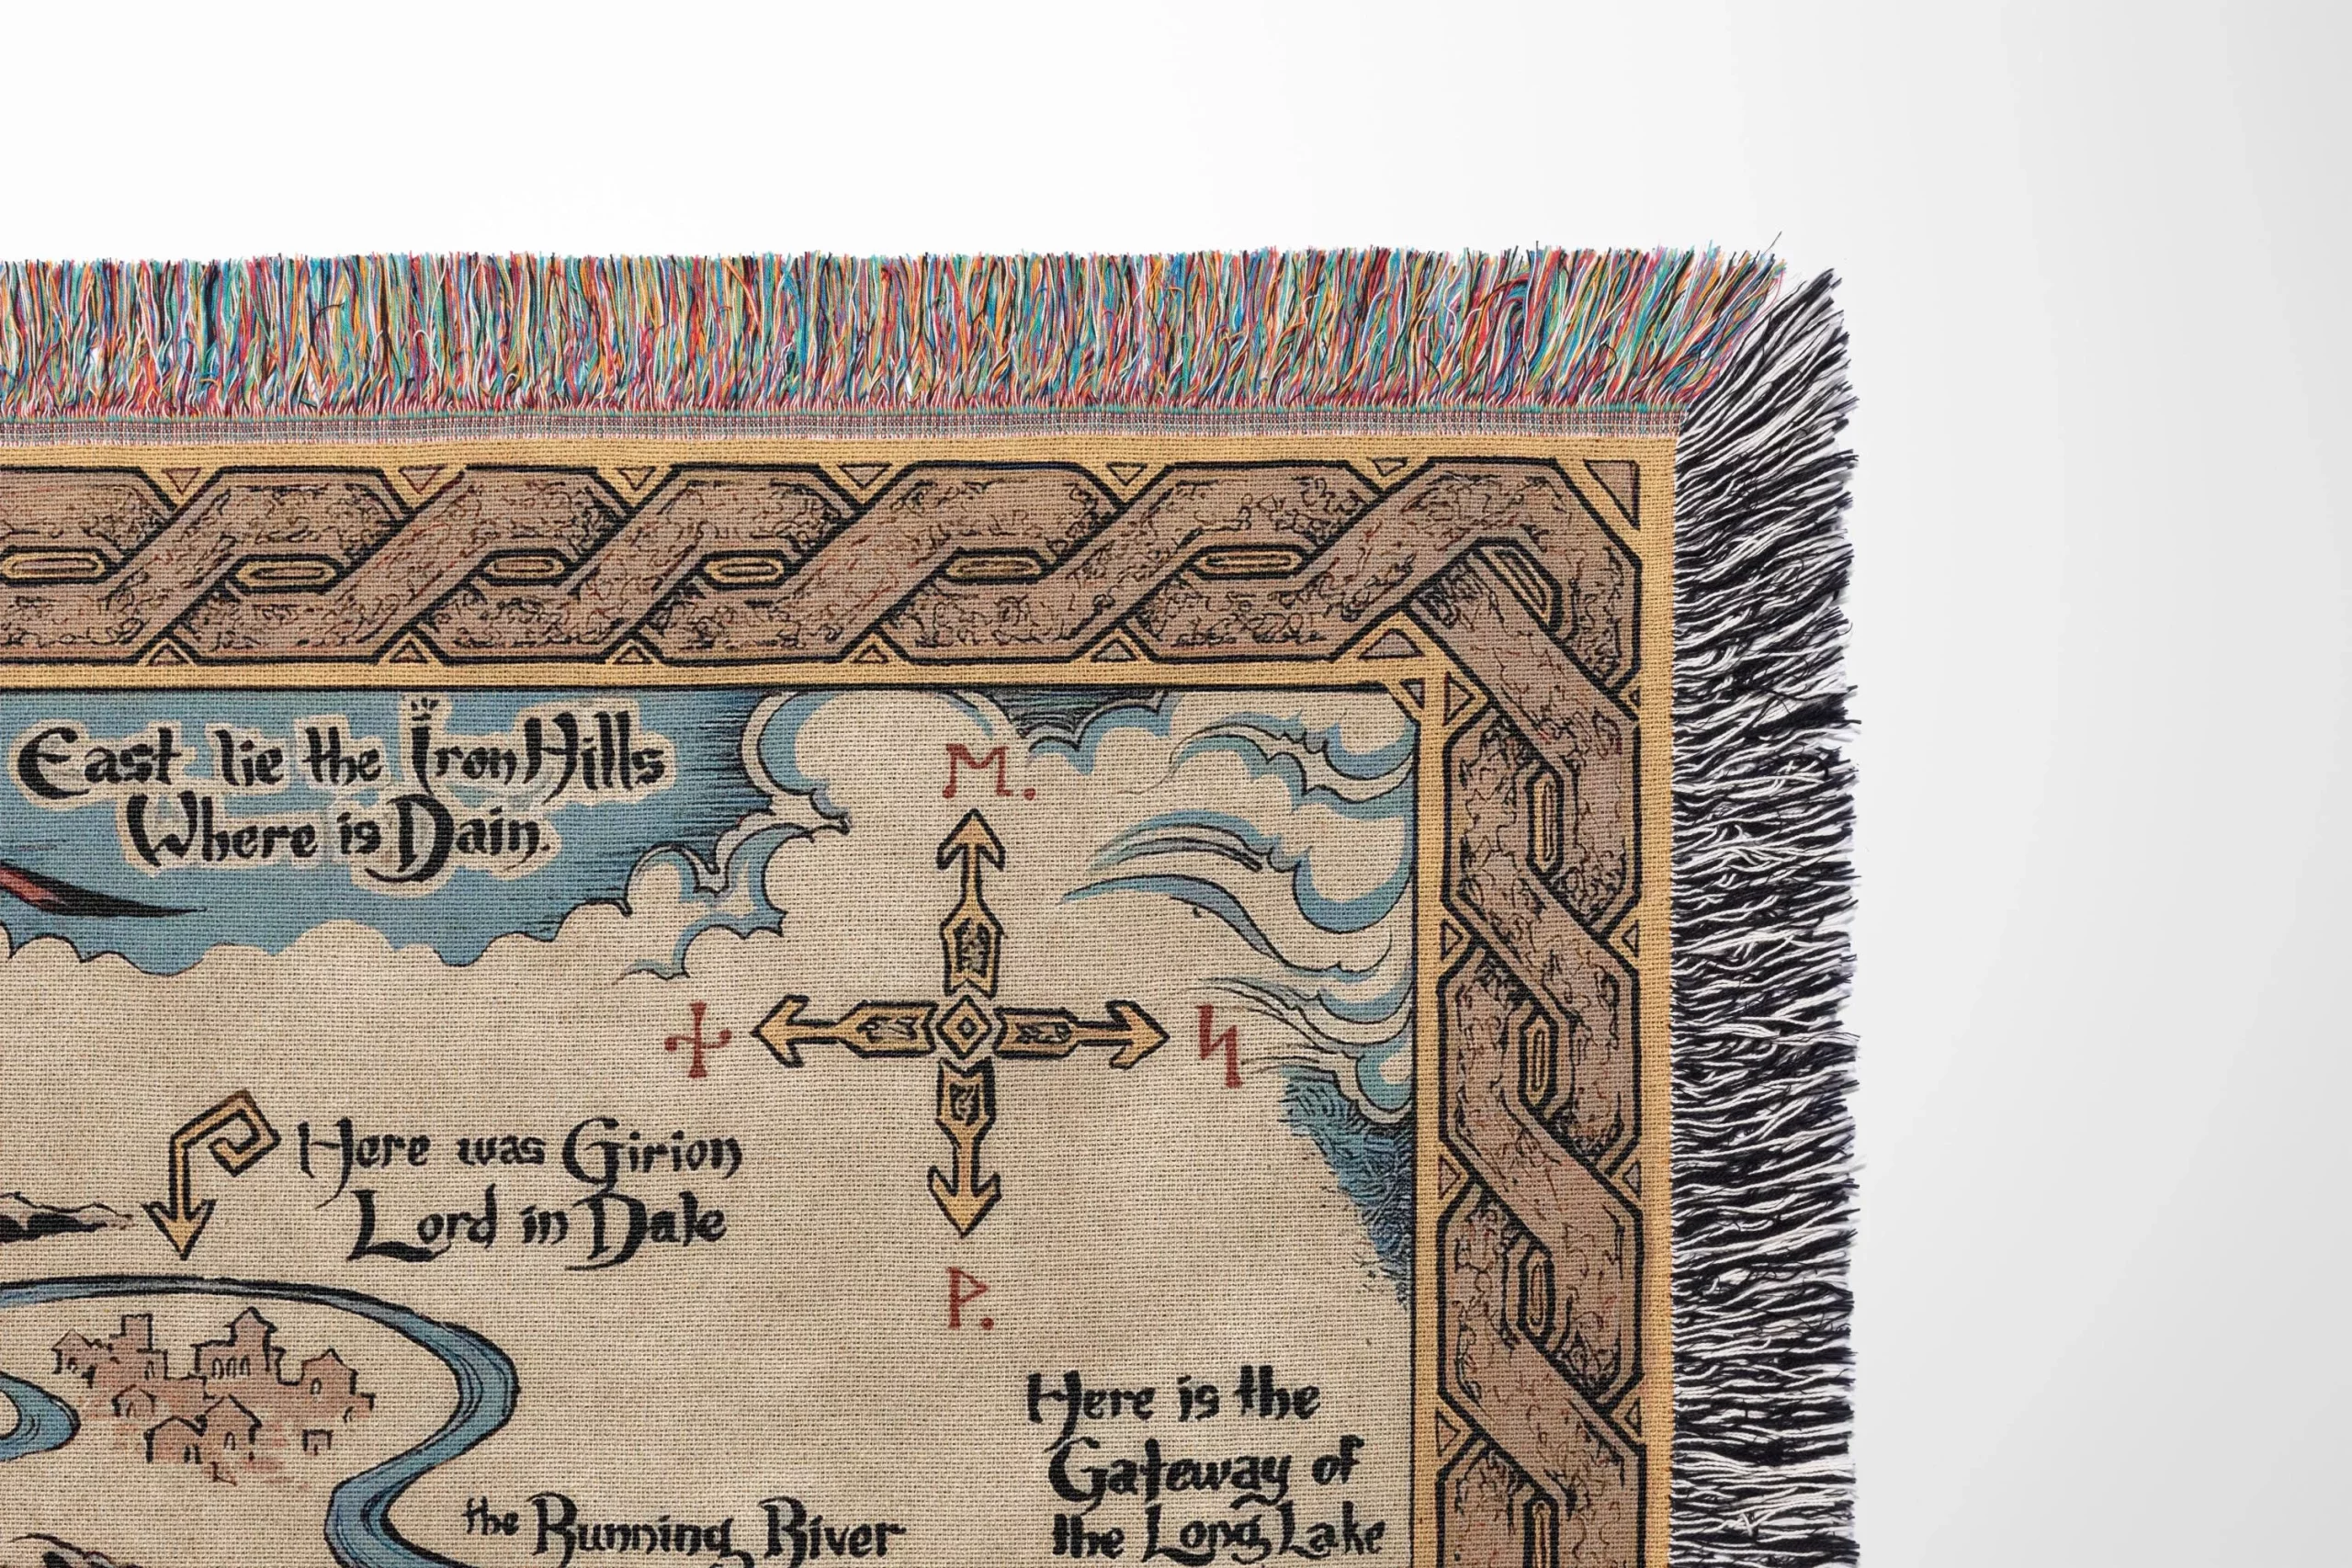 East lie the Iron Hills
Where is Dain.
ᛖ.
ᚾ ᛋ
ᚹ.
Here was Girion
Lord in Dale
Here is the
Gateway of
the Long Lake
the Running River